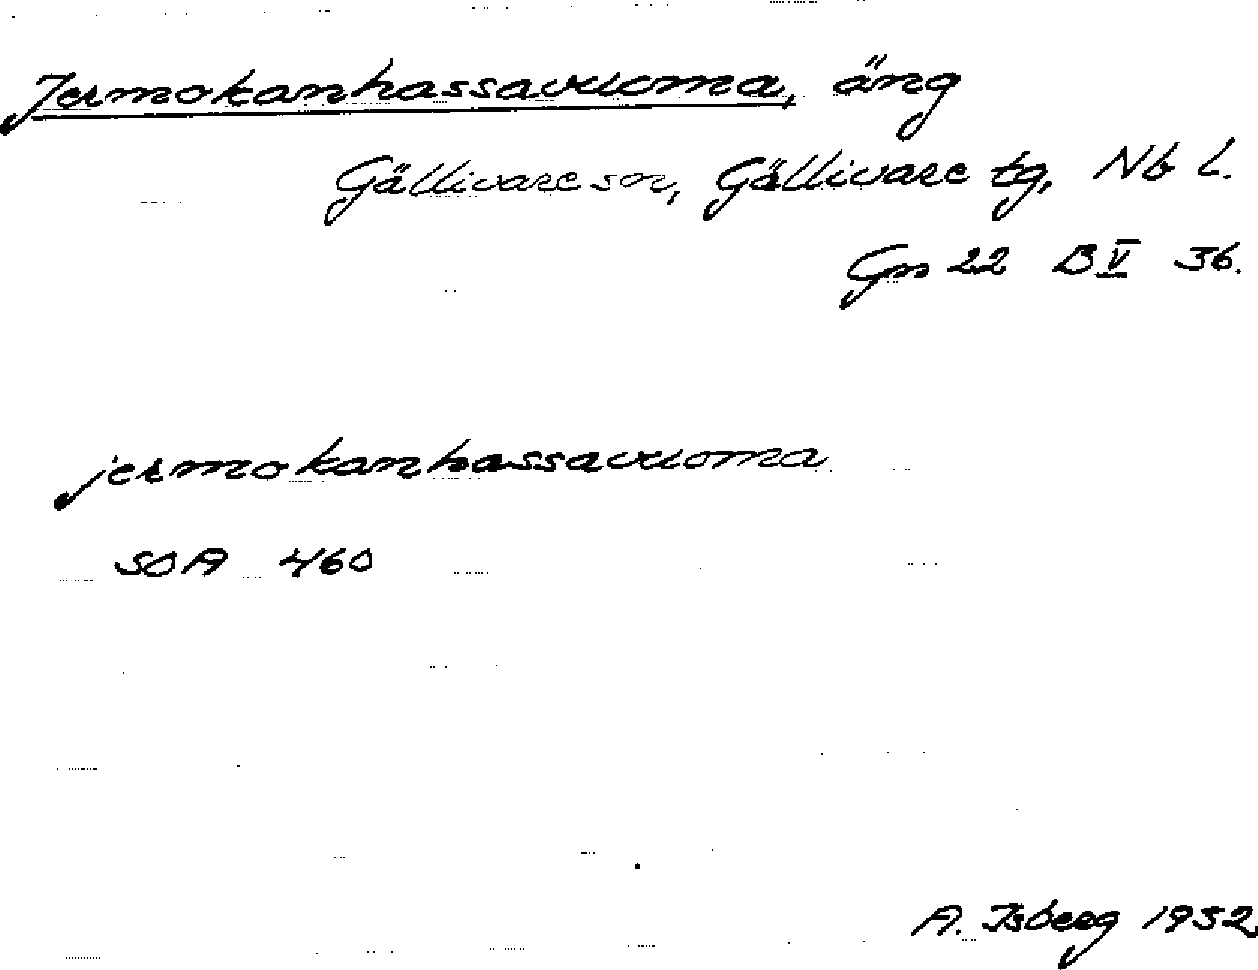 Jermokanhassavuoma, äng
Gällivare sn, Gällivare tg, Nb L.
Gn 22 B V 36.
jermokanhassavuoma
SOA 460
A. Isberg 1952